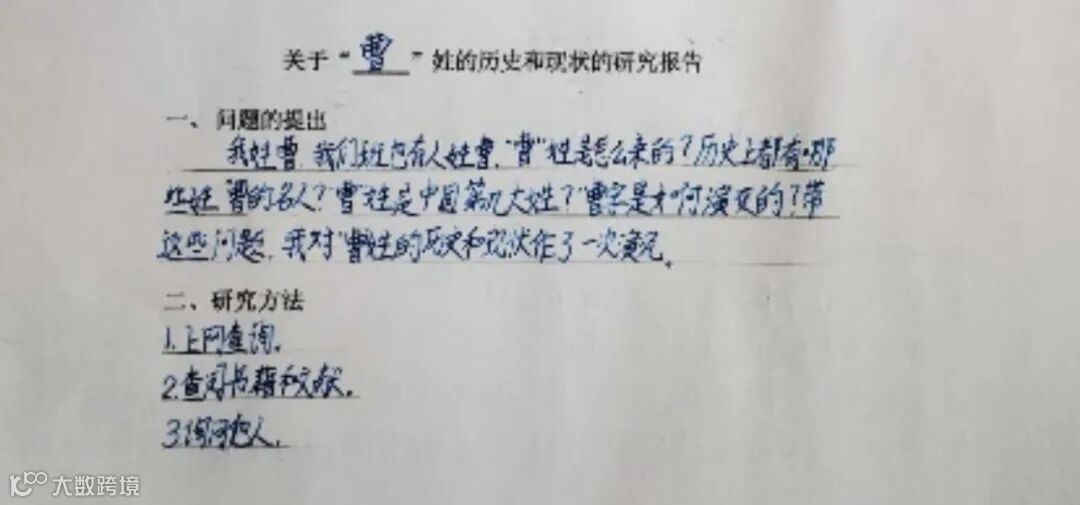 关于“曹”姓的历史和现状的研究报告
一、问题的提出
我姓曹,我们班也有人姓曹,“曹”姓是怎么来的?历史上都有那
些姓曹的名人?“曹”姓是中国第几大姓?“曹字是如何演变的?带
这些问题,我对“曹姓的历史和现状作了一次
二、研究方法
1.上网查询。
2.查阅书籍和文献。
3.询问他人。
大数跨境